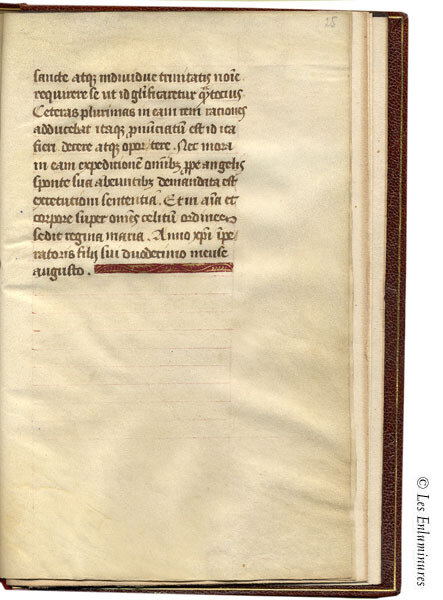 28
sancte atq individue trinitatis noīe
requirere se ut id glīficaretur q̄tocius
Ceteras plurimas in eam rem raciones
adducebat itaq pnūciatū est id ita
fieri decere atq oportere. Nec mora
in eam expeditionem om̄ibz ppe angelis
sponte sua abeuntibz demandata est
executioni sententia. Et in aīa et
corpore super om̄es celitum ordines
sedit regina maria. Anno xp̄i īpe
ratoris filij sui duodecimo mense
augusto.
© Les Enluminures